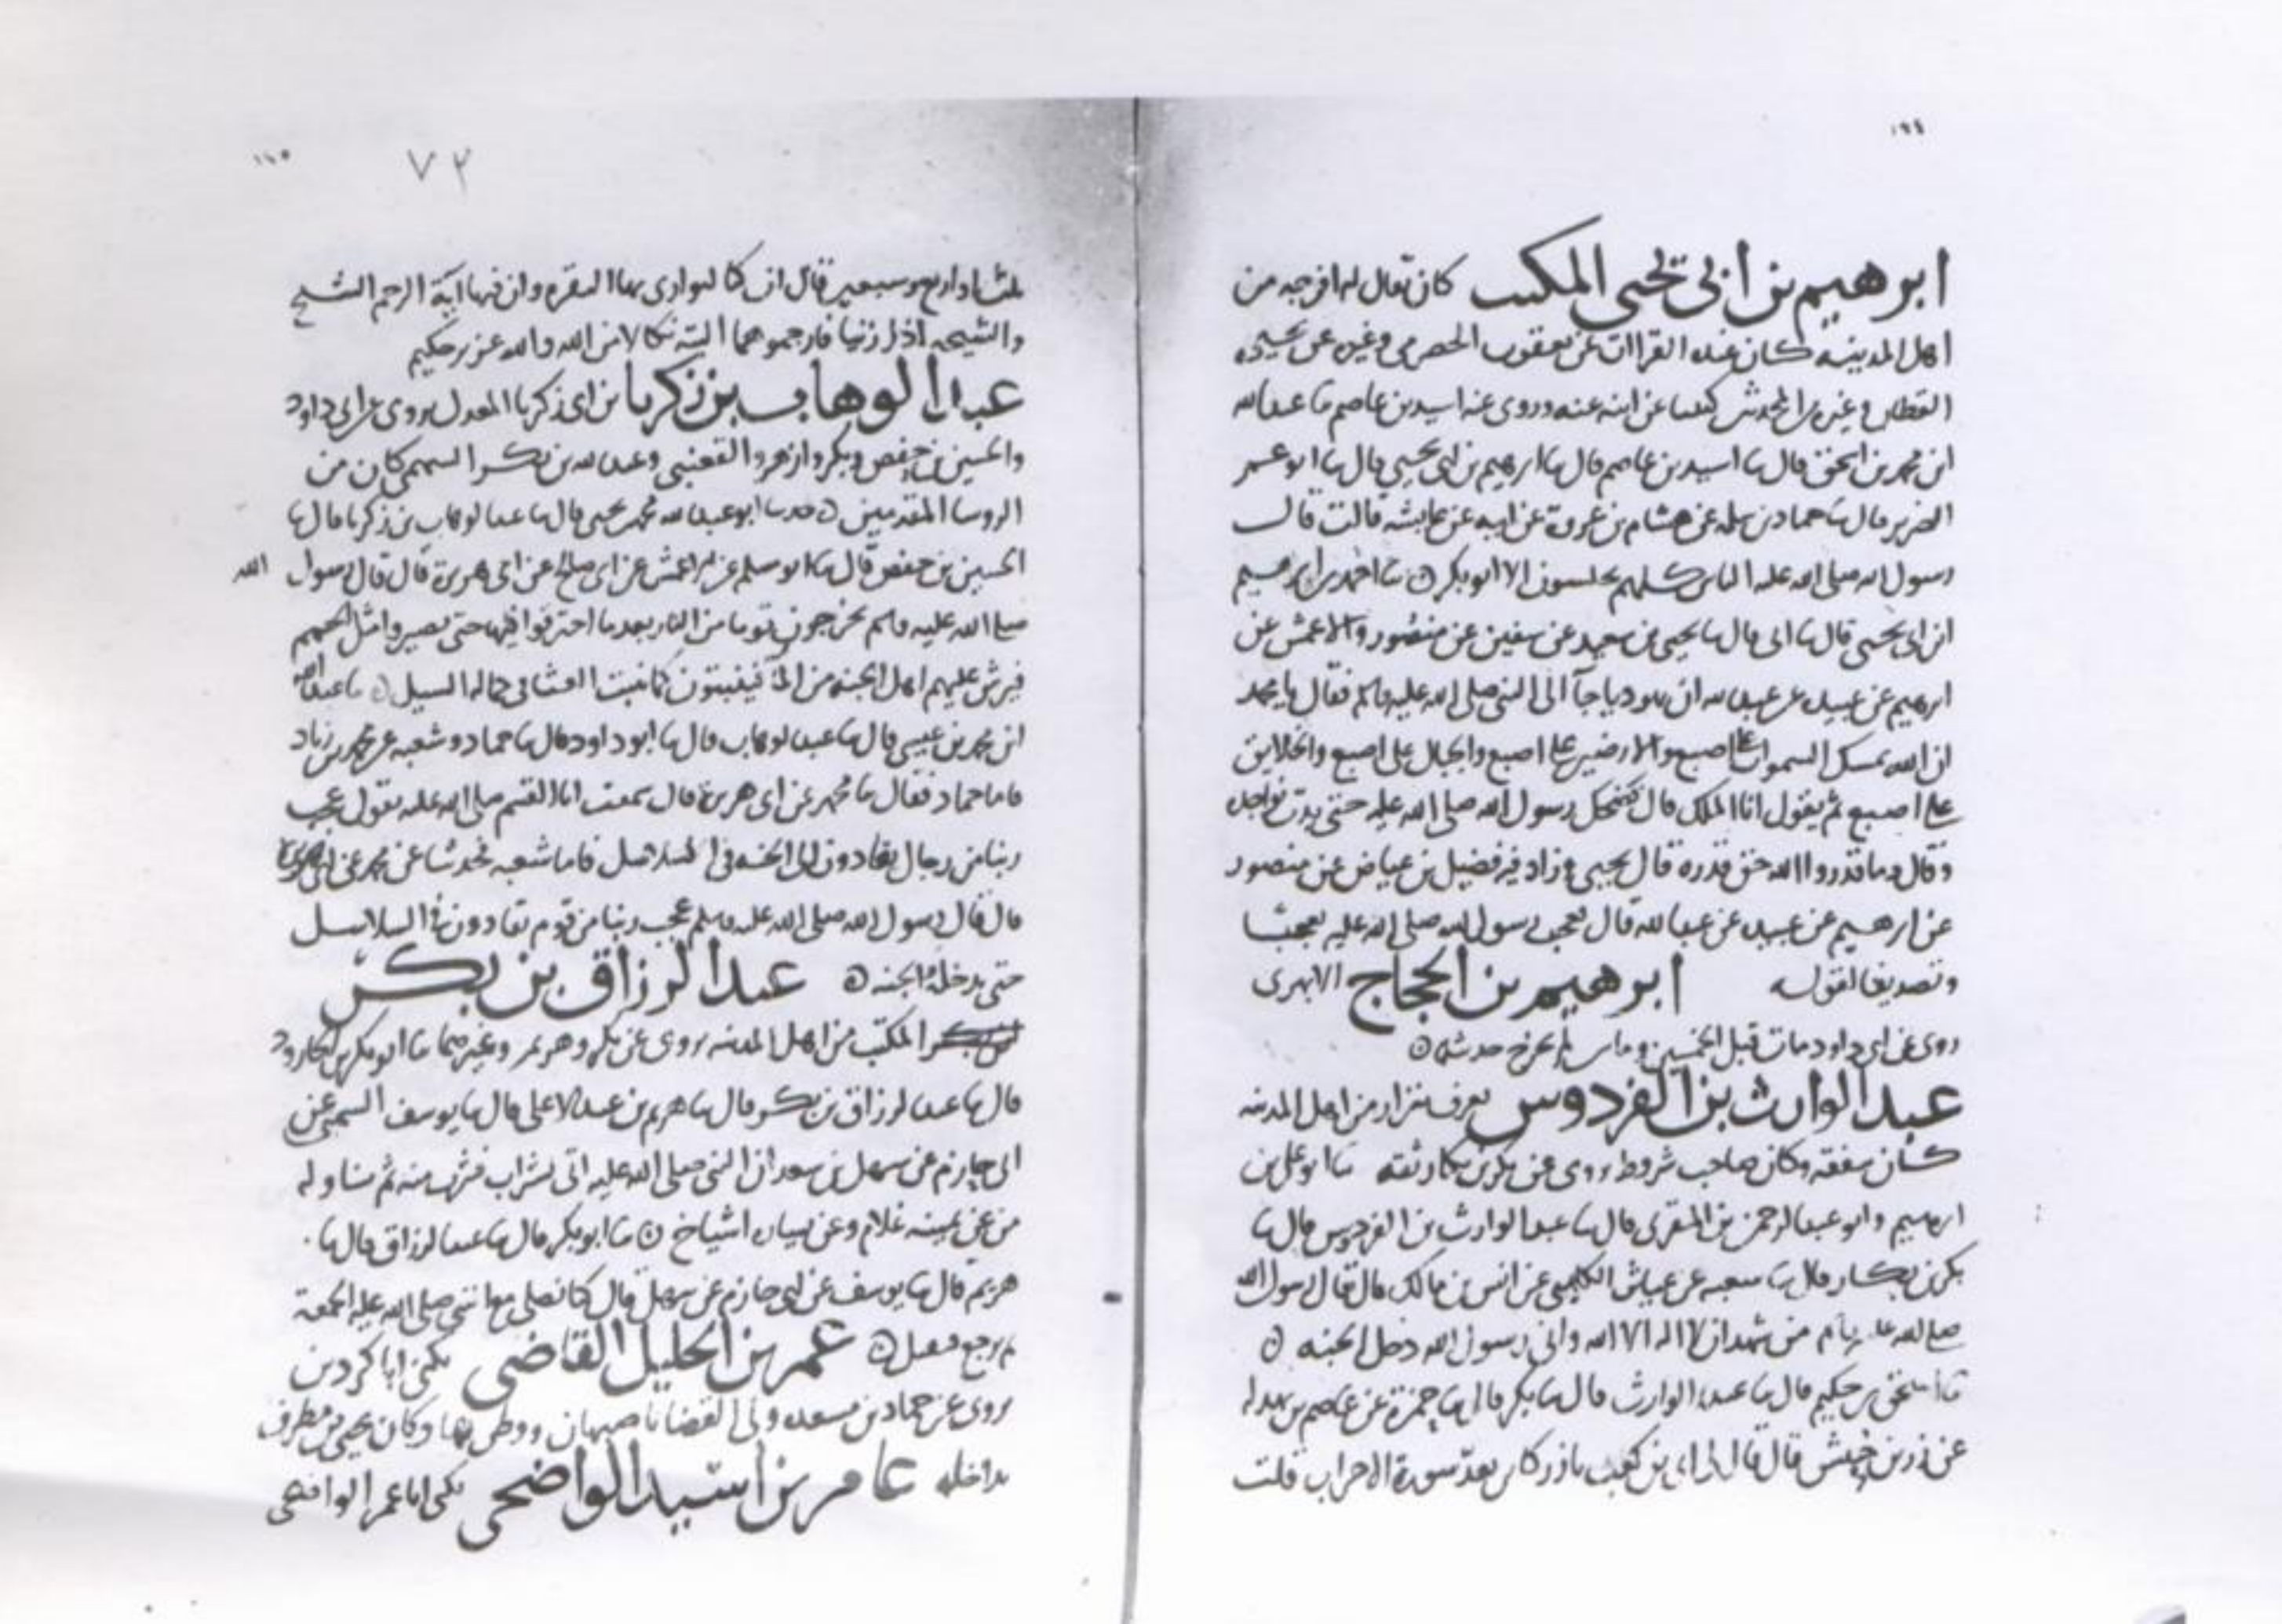 ابرهيم بن ابي يحيى المكتب كان يقال له افرجه من
اهل المدينه كان عنده القراات عن يعقوب الحضرمي وغيره عن يحيى
القطان وغيره المحدث عن ابنه عنه وروى عنه اسيد بن عاصم ما عبدالله
ابن محمد بن اسحق قال ما اسيد بن عاصم قال ما ابرهيم بن ابي يحيى قال ما ابو عمر
الضرير قال ما حماد بن سلمه عن هشام بن عروة عن ابيه عن عايشه قالت قال
رسول الله صلى الله عليه الناس كلهم يحاسبون الا ابو بكر ما احمد بن ابرهيم
ابن ابي يحيى قال ما ابي قال ما يحيى بن سعيد عن سفين عن منصور والاعمش عن
ابرهيم عن عبيده عن عبدالله ان يهوديا جآ الى النبي صلى الله عليه وسلم فقال يا محمد
ان الله يمسك السموات على اصبع والارضين على اصبع والجبال على اصبع والخلايق
على اصبع ثم يقول انا الملك قال فضحك رسول الله صلى الله عليه حتى بدت نواجذه
وقال وما قدروا الله حق قدره قال يحيى وزاد فيه فضيل بن عياض عن منصور
عن ابرهيم عن عبيده عن عبدالله قال فعجب رسول الله صلى الله عليه تعجبا
وتصديقا لقوله ابرهيم بن الحجاج الابهري
روى عن ابي داود مات قبل الخمسين وماس لم يخرج حديثه
عبد الوارث بن الفردوس يعرف بنزار من اهل المدينه
كان يتفقه وكان صاحب شروط روى عن بكر بن بكار ثقه ما ابو علي بن
ابرهيم وابو عبد الرحمن بن المقرى قال ما عبد الوارث بن الفردوس قال ما
بكر بن بكار قال ما شعبه عن عياش الكليبي عن انس بن مالك قال قال رسول الله
صلى الله عليه وسلم من شهد ان لا اله الا الله واني رسول الله دخل الجنه
ما اسحق بن حكيم قال ما عبد الوارث قال ما بكر قال ما حمزة عن عاصم بن بهدله
عن زر بن حبيش قال قال لي ابي بن كعب يا زر كاين تعد سورة الاحزاب قلت
١١٥ ٧٢
ثلثا او اربع وسبعين قال ان كانت لتوازي بها البقره وان فيها آية الرجم الشيخ
والشيخه اذا زنيا فارجموهما البتة نكالا من الله والله عزيز حكيم
عبد الوهاب بن زكريا بن ابي زكريا المعدل يروى عن ابي داود
والحسين بن حفص وبكر وازهر والقعنبي وعبدالله بن بكر السهمي كان من
الروسا المقدمين حدثنا ابو عبدالله محمد بن يحيى قال ما عبد الوهاب بن زكريا قال ما
الحسين بن حفص قال ما ابو مسلم عن الاعمش عن ابي صالح عن ابي هريرة قال قال رسول الله
صلى الله عليه وسلم يخرجون قوما من النار بعد ما احترقوا فيها حتى يصيروا مثل الحمم
فيرش عليهم اهل الجنه من الما فينبتون كما ينبت الغثا في حماله السيل ما عبدالله
ابن محمد بن عيسى قال ما عبد الوهاب قال ما ابو داود قال ما حماد وشعبه عن محمد بن زياد
فاما حماد فقال ما محمد عن ابي هريرة قال سمعت ابا القسم صلى الله عليه يقول عجب
ربنا من رجال يقادون الى الجنه في السلاسل فاما شعبه فحدثنا عن محمد عن ابي هريرة
قال قال رسول الله صلى الله عليه وسلم عجب ربنا من قوم يقادون في السلاسل
حتى يدخلوا الجنه عبد الرزاق بن بكر
المكتب من اهل المدينه يروى عن بكر وهريم وغيرهما ما ابو بكر بن الجارود
قال ما عبد الرزاق بن بكر قال ما هريم بن عبد الاعلى قال ما يوسف السمتي عن
ابي حازم عن سهل بن سعد ان النبي صلى الله عليه اتي بشراب فشرب منه ثم ناوله
من عن يمينه غلام وعن يساره اشياخ ما ابو بكر قال ما عبد الرزاق قال ما
هريم قال ما يوسف عن ابي حازم عن سهل قال كنا نصلي مع النبي صلى الله عليه الجمعة
ثم نرجع فنقيل عمر بن الخليل القاضي يكنى ابا كردين
يروى عن حماد بن مسعده ولي القضا باصبهان ووطن بها وكان يحيى بن مطرف
يداخله عامر بن اسيد الواضحي يكنى ابا عمر الواضحي